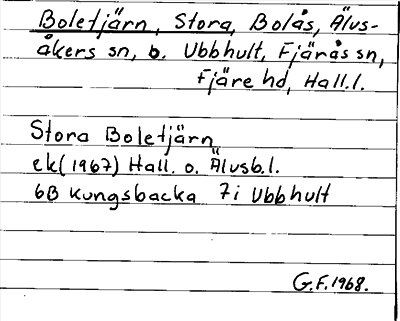 Boletjärn, Stora, Bolås, Älvs-
åkers sn, o. Ubbhult, Fjärås sn,
Fjäre hd, Hall.l.
Stora Boletjärn
ek(1967) Hall. o. Älvsb.l.
6B Kungsbacka 7i Ubbhult
G.F.1968.